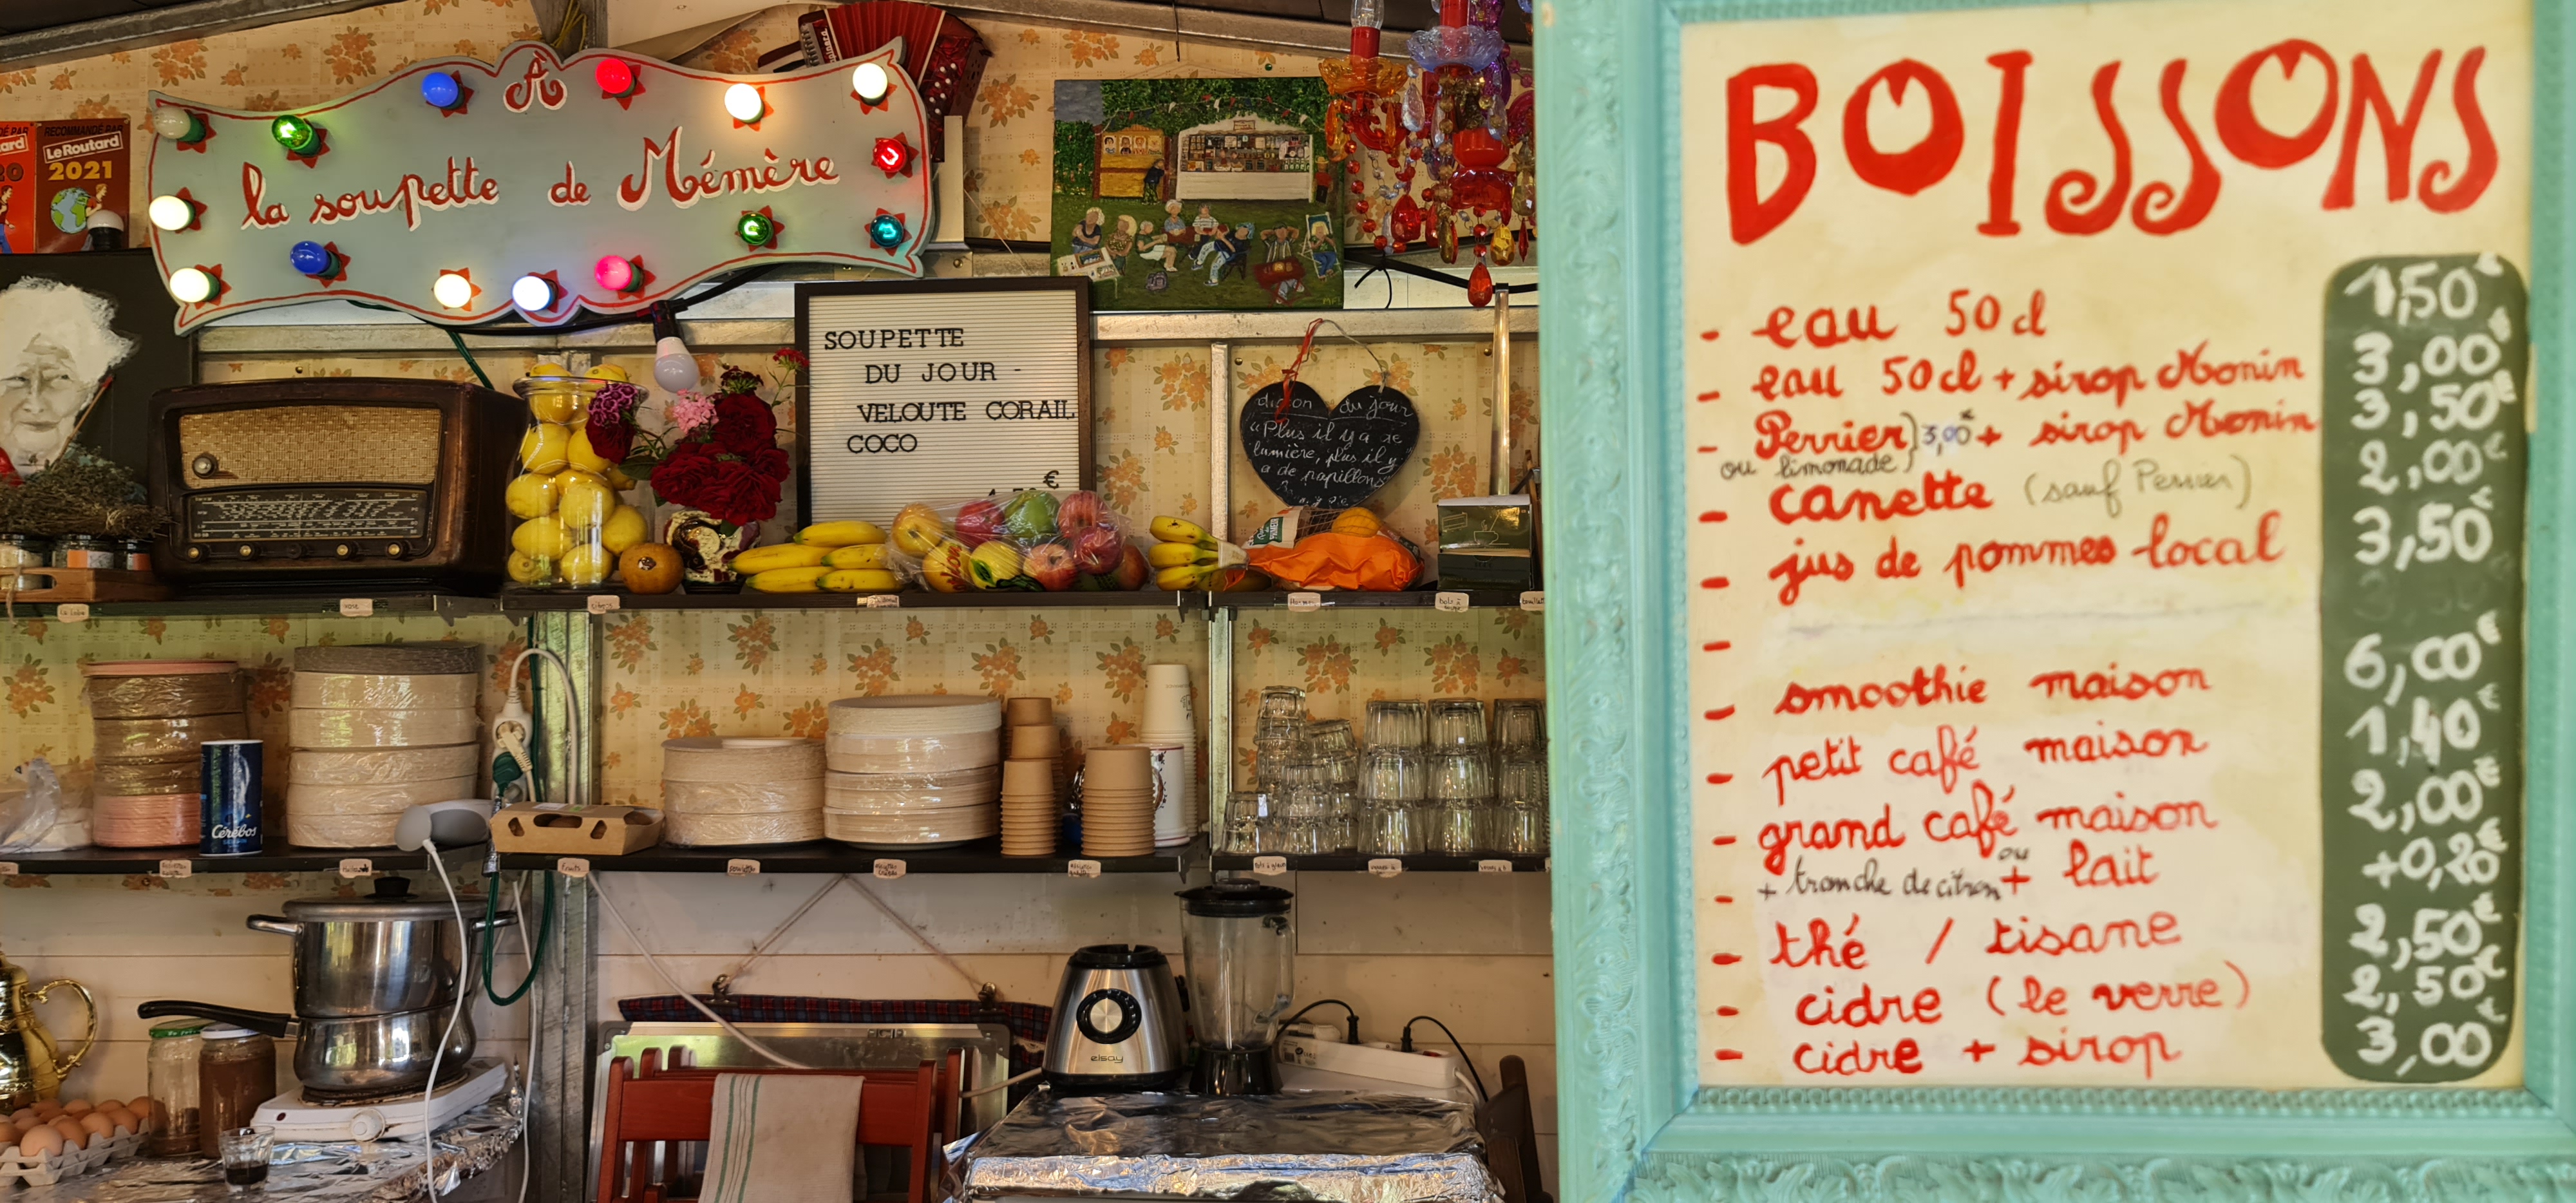 À
la soupette de Mémère
RECOMMANDÉ PAR
Le Routard
2021
SOUPETTE
DU JOUR -
VELOUTE CORAIL
COCO
€
dicton du jour
"Plus il y a de
lumière, plus il y
a de papillons"
Cérébos
elsay
BOISSONS
- eau 50 cl 1,50€
- eau 50 cl + sirop Monin 3,00€
- Perrier) 3,00€ + sirop Monin 3,50€
ou limonade)
- canette (sauf Perrier) 2,00€
- jus de pommes local 3,50€
-
- smoothie maison 6,00€
- petit café maison 1,40€
- grand café maison 2,00€
- + tranche de citron ou + lait +0,20€
- thé / tisane 2,50€
- cidre (le verre) 2,50€
- cidre + sirop 3,00€